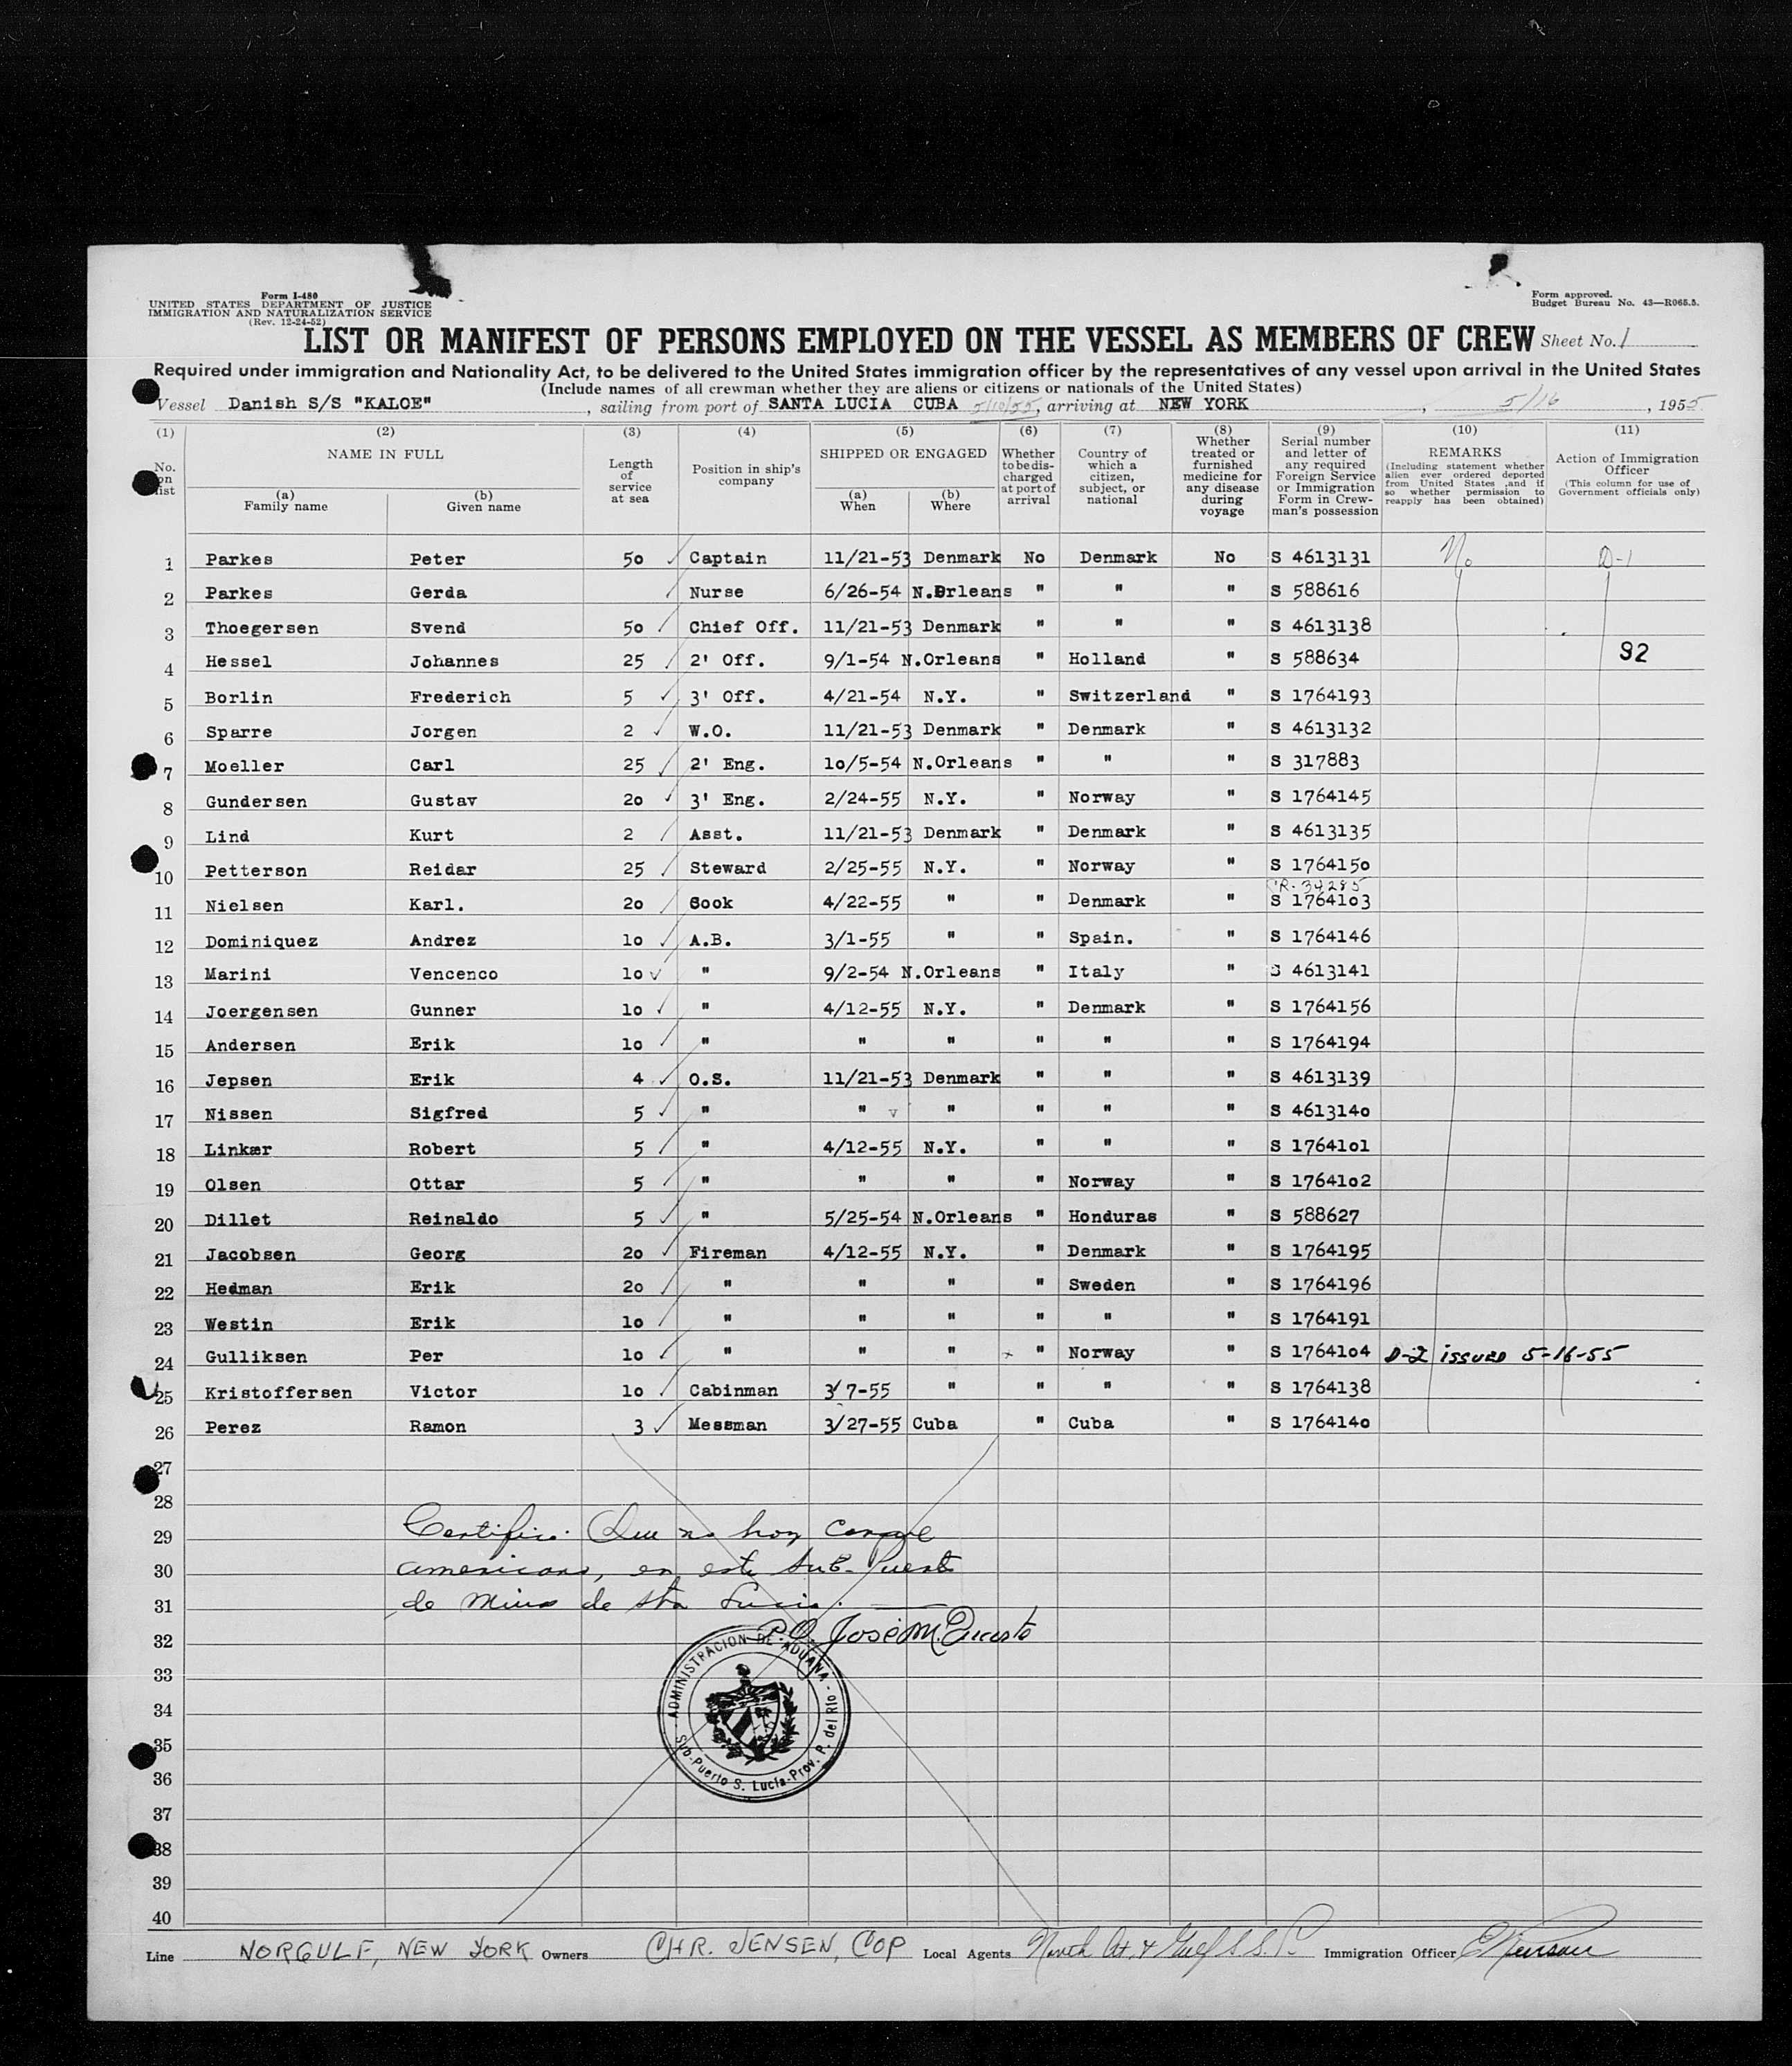 Form I-480
UNITED STATES DEPARTMENT OF JUSTICE
IMMIGRATION AND NATURALIZATION SERVICE
(Rev. 12-24-52)
Form approved.
Budget Bureau No. 43—R065.5.
LIST OR MANIFEST OF PERSONS EMPLOYED ON THE VESSEL AS MEMBERS OF CREW Sheet No. 1
Required under immigration and Nationality Act, to be delivered to the United States immigration officer by the representatives of any vessel upon arrival in the United States
(Include names of all crewman whether they are aliens or citizens or nationals of the United States)
Vessel Danish S/S "KALOE", sailing from port of SANTA LUCIA CUBA 5/10/55, arriving at NEW YORK, 5/16, 1955
(1) (2) (3) (4) (5) (6) (7) (8) (9) (10) (11)
No. on list
NAME IN FULL
(a) Family name
(b) Given name
Length of service at sea
Position in ship's company
SHIPPED OR ENGAGED
(a) When
(b) Where
Whether to be discharged at port of arrival
Country of which a citizen, subject, or national
Whether treated or furnished medicine for any disease during voyage
Serial number and letter of any required Foreign Service or Immigration Form in Crewman's possession
REMARKS
(Including statement whether alien ever ordered deported from United States ,and if so whether permission to reapply has been obtained)
Action of Immigration Officer
(This column for use of Government officials only)
1 Parkes Peter 50 ✓ Captain 11/21-53 Denmark No Denmark No S 4613131 No D-1
2 Parkes Gerda ✓ Nurse 6/26-54 N.Orleans " " " S 588616
3 Thoegersen Svend 50 ✓ Chief Off. 11/21-53 Denmark " " " S 4613138
4 Hessel Johannes 25 ✓ 2' Off. 9/1-54 N.Orleans " Holland " S 588634 92
5 Borlin Frederich 5 ✓ 3' Off. 4/21-54 N.Y. " Switzerland " S 1764193
6 Sparre Jorgen 2 ✓ W.O. 11/21-53 Denmark " Denmark " S 4613132
7 Moeller Carl 25 ✓ 2' Eng. 10/5-54 N.Orleans " " " S 317883
8 Gundersen Gustav 20 ✓ 3' Eng. 2/24-55 N.Y. " Norway " S 1764145
9 Lind Kurt 2 ✓ Asst. 11/21-53 Denmark " Denmark " S 4613135
10 Petterson Reidar 25 ✓ Steward 2/25-55 N.Y. " Norway " S 1764150
CR-34285
11 Nielsen Karl. 20 ✓ Cook 4/22-55 " " Denmark " S 1764103
12 Dominiquez Andrez 10 ✓ A.B. 3/1-55 " " Spain. " S 1764146
13 Marini Vencenco 10 ✓ " 9/2-54 N.Orleans " Italy " S 4613141
14 Joergensen Gunner 10 ✓ " 4/12-55 N.Y. " Denmark " S 1764156
15 Andersen Erik 10 ✓ " " " " " " S 1764194
16 Jepsen Erik 4 ✓ O.S. 11/21-53 Denmark " " " S 4613139
17 Nissen Sigfred 5 ✓ " " " " " " S 4613140
18 Linkær Robert 5 ✓ " 4/12-55 N.Y. " " " S 1764101
19 Olsen Ottar 5 ✓ " " " " Norway " S 1764102
20 Dillet Reinaldo 5 ✓ " 5/25-54 N.Orleans " Honduras " S 588627
21 Jacobsen Georg 20 ✓ Fireman 4/12-55 N.Y. " Denmark " S 1764195
22 Hedman Erik 20 ✓ " " " " Sweden " S 1764196
23 Westin Erik 10 ✓ " " " " " " S 1764191
24 Gulliksen Per 10 ✓ " " " " Norway " S 1764104 D-2 issued 5-16-55
25 Kristoffersen Victor 10 ✓ Cabinman 3/7-55 " " " " S 1764138
26 Perez Ramon 3 ✓ Messman 3/27-55 Cuba " Cuba " S 1764140
27
28
29 Certifico: Que no hay Consul
30 americano, en este Sub-Puerto
31 de Minas de Sta Lucia.
32 P.O. José M.
33
34
35
36
37
38
39
40
ADMINISTRACION DE ADUANA
Sub-Puerto S. Lucia-Prov. P. del Rio
Line NORGULF, NEW YORK Owners CHR. JENSEN, COP Local Agents North At. & Gulf S.S. Immigration Officer